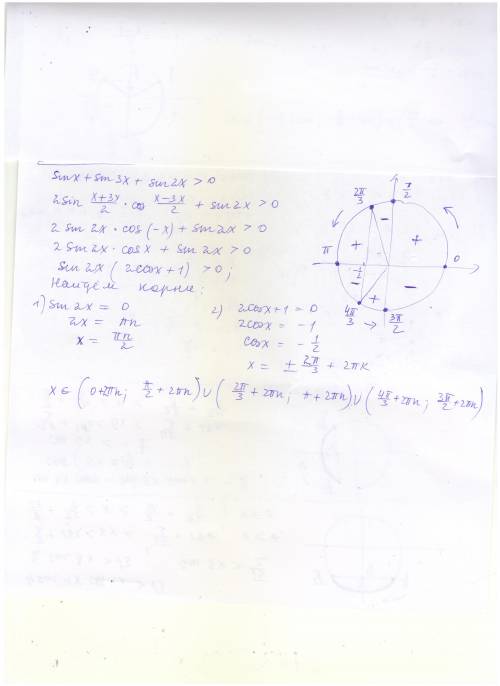 sinx + sin3x + sin2x > 0
2sin (x+3x)/2 · cos (x-3x)/2 + sin2x > 0
2 sin2x · cos(-x) + sin2x > 0
2 sin2x · cosx + sin2x > 0
sin2x (2cosx + 1) > 0;
Найдём корни:
1) sin2x = 0
2x = πn
x = πn/2
2) 2cosx + 1 = 0
2cosx = -1
cosx = - 1/2
x = ± 2π/3 + 2πk
x ∈ (0+2πn; π/2 + 2πn) ∪ (2π/3 + 2πn; π + 2πn) ∪ (4π/3 + 2πn; 3π/2 + 2πn)
2π/3
π/2
-
+
+
π
-1/2
0
-
+
-
4π/3
3π/2